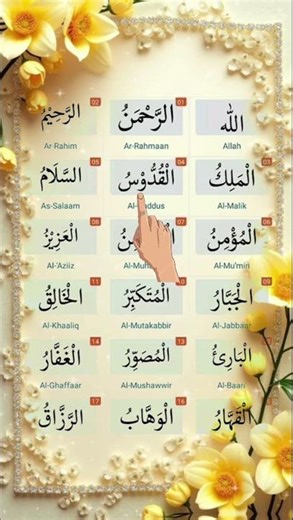 الله 01 الرَّحْمَنُ 02 الرَّحِيْمُ
Allah Ar-Rahmaan Ar-Rahim
03 الْمَلِكُ 04 الْقُدُّوْسُ 05 السَّلَامُ
Al-Malik As-Salaam
الْمُؤْمِنُ 08 الْعَزِيْزُ
Al-Mu'min Al-'Aziiz
09 الْجَبَّارُ الْمُتَكَبِّرُ 11 الْخَالِقُ
Al-Jabbaar Al-Mutakabbir Al-Khaaliq
الْبَارِئُ 13 الْمُصَوِّرُ 14 الْغَفَّارُ
Al-Baari Al-Mushawwir Al-Ghaffaar
الْقَهَّارُ 16 الْوَهَّابُ 17 الرَّزَّاقُ